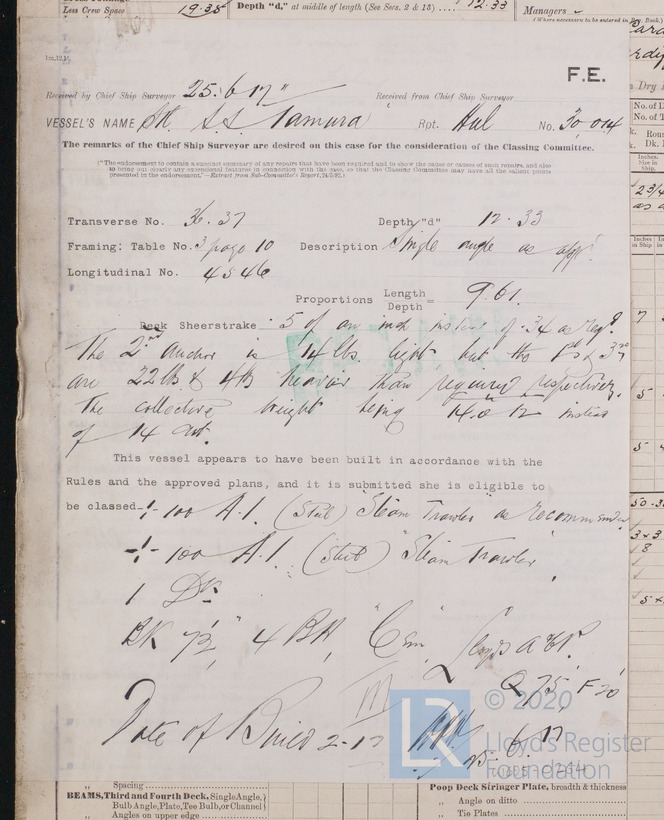 Less Crew Space 19.35 Depth "d," at middle of length (See Secs. 2 & 13) .... 12.33 Managers
(Where necessary to be entered in Reg. Book.)
F.E.
Received by Chief Ship Surveyor 25.6.17 Received from Chief Ship Surveyor
VESSEL'S NAME S.S. Tamura Rpt. Hul No. 30,014
The remarks of the Chief Ship Surveyor are desired on this case for the consideration of the Classing Committee.
("The endorsement to contain a succinct summary of any repairs that have been required and to show the cause or causes of such repairs, and also
to bring out clearly any exceptional features in connection with the case, so that the Classing Committee may have all the salient points
presented in the endorsement."—Extract from Sub-Committee's Report,
Transverse No. 36.37 Depth "d" 12.33
Framing: Table No. 3 page 10 Description Single angle as app.
Longitudinal No. 4546
Proportions Length
Depth = 9.61
Deck Sheerstrake .5 of an inch instead of .34 as req.
The 2nd Anchor is 14 lbs light but the 1st & 3rd
are 22 lbs & 4 lbs heavier than required respectively.
The collective weight being 14.0.12 instead
of 14 cwt.
This vessel appears to have been built in accordance with the
Rules and the approved plans, and it is submitted she is eligible to
be classed 100 A.1. (Steel) "Steam Trawler" as recommended
100 A.1. (Steel) "Steam Trawler"
1 Dk
BK 7½" 4 BH "Cem" Lloyds A & CP.
Q 25' F 20'
Date of Build 2-17 25.6.17
© 2020
Lloyd's Register
Foundation
" Spacing
BEAMS, Third and Fourth Deck, Single Angle, Poop Deck Stringer Plate, breadth & thickness
Bulb Angle, Plate, Tee Bulb, or Channel " Angle on ditto
" Angles on upper edge " Tie Plates